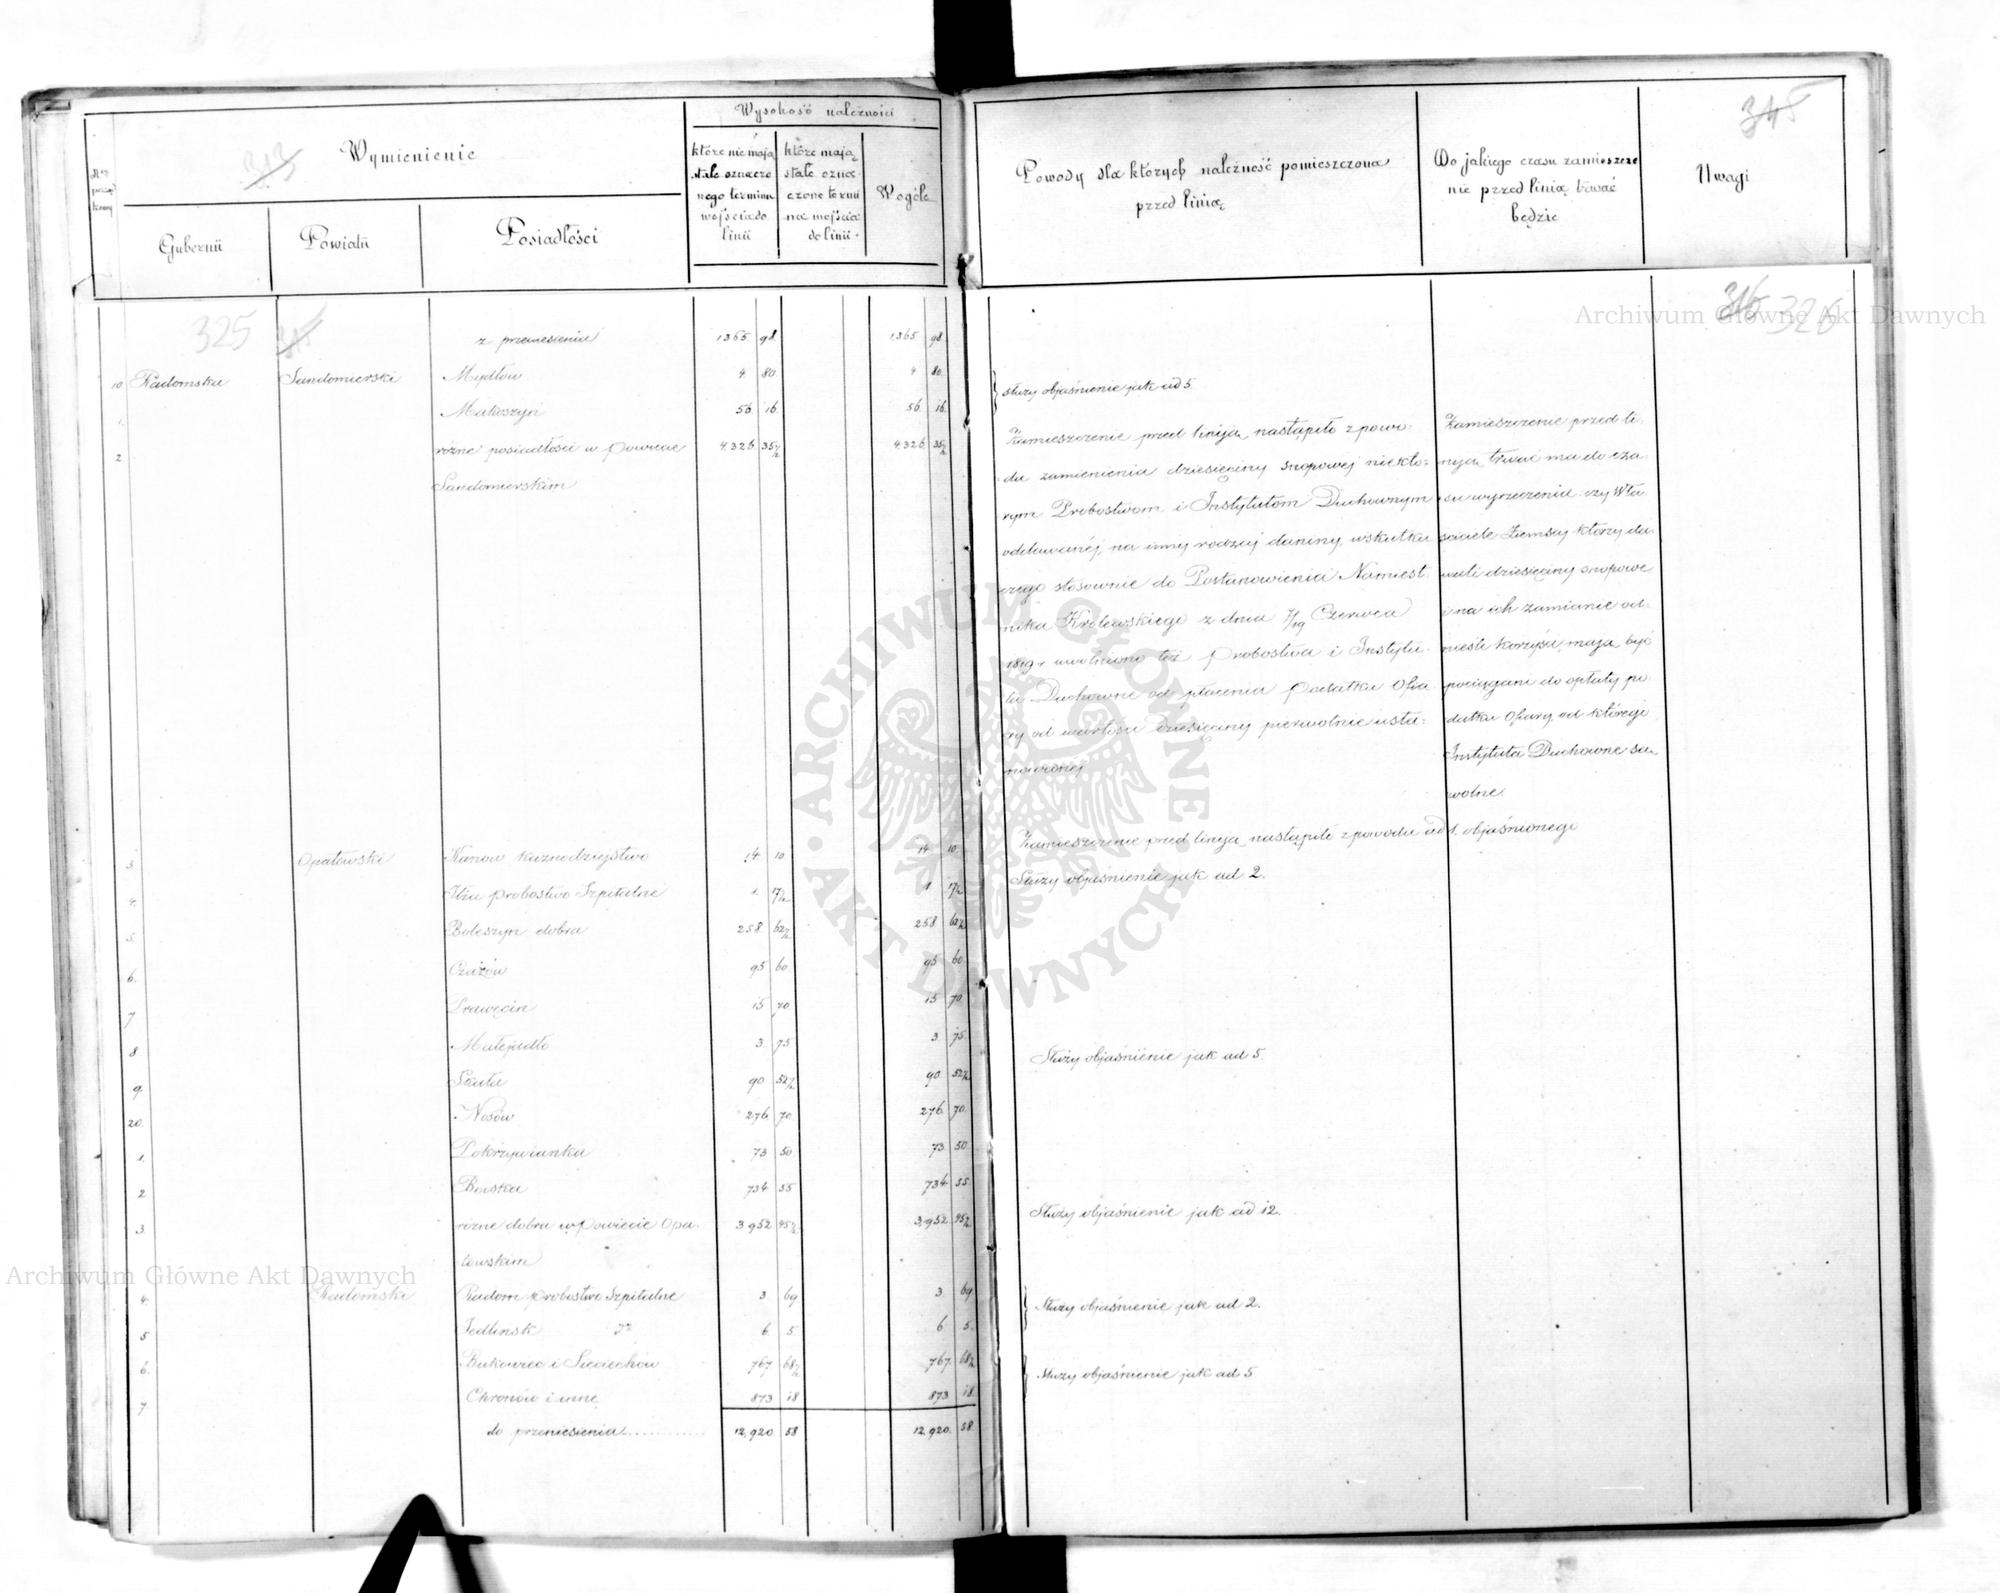 Wysokość należności
Wymienienie
313
które nie mają stale oznaczonego terminu wejścia do linii
które mają stale oznaczone termi na wejścia do linii
Wogóle
Gubernii
Powiatu
Posiadłości
Powody dla których należność pomieszczona
przed linią
Do jakiego czasu zamieszcze
nie przed linią trwać
będzie
Uwagi
345
325
326
Archiwum Główne Akt Dawnych
z przeniesienia 1365 98 1365 98
10 Radomska Sandomierski Mydłów 4 80 4 80
1. Makoszyn 56 16 56 16
2 różne posiadłości w powiecie 4.326 35½ 4.326 35½
Sandomierskim
3. Opatowski Kunow kaznodziejstwo 14 10 14 10
4. Iłża probostwo Szpitalne 1 17½ 1 17½
5. Boleszyn dobra 258 62½ 258 62½
6. 95 60 95 60
7 Prawęcin 15 70 15 70
8 3 75 3 75
9. Skała 90 52½ 90 52½
20. Nosów 276 70 276 70
1. Pokrzywianka 73 50 73 50
2 734 55 734 55
3. różne dobra w powiecie Opa- 3,952 95½ 3,952 95½
towskim
Archiwum Główne Akt Dawnych
4. Radomski Radom probostwo Szpitalne 3 69 3 69
5 Jedlinsk do 6 5 6 5
6. Bukowiec i Sieciechów 767 68½ 767 68½
7 Chronów i inne 873 18 873 18
do przeniesienia 12,920 58 12,920 58
służy objaśnienie jak ad 5.
Zamieszczenie przed linija nastąpiło z powo-
du zamienienia dziesięciny snopowej niektó-
rym Probostwom i Instytutom Duchownym
oddawanéj, na inny rodzaj daniny, wskutku
czego stosownie do Postanowienia Namiest-
nika Królewskiego z dnia 7/19 Czerwca
1819 r uwolniono też probostwa i Instytu-
ta Duchowne od płacenia podatku Ofia-
ry od wartości dziesięciny pierwotnie usta-
nowionej
Zamieszczenie przed li-
niją trwać ma do cza-
su wyrzeczenia czy Wła-
sciciele Ziemscy którzy da-
wali dziesięciny snopowe
i na ich zamianie od-
nieśli korzyści, mają być
pociągani do opłaty po-
datku Ofiary od którego
Instytuta Duchowne są
wolne.
Zamieszczenie przed liniją nastąpiło z powodu ad 1. objaśnionego
Służy objaśnienie jak ad 2.
Służy objaśnienie jak ad 5.
Służy objaśnienie jak ad 12.
Służy objaśnienie jak ad 2.
Służy objaśnienie jak ad 5
ARCHIWUM GŁÓWNE AKT DAWNYCH